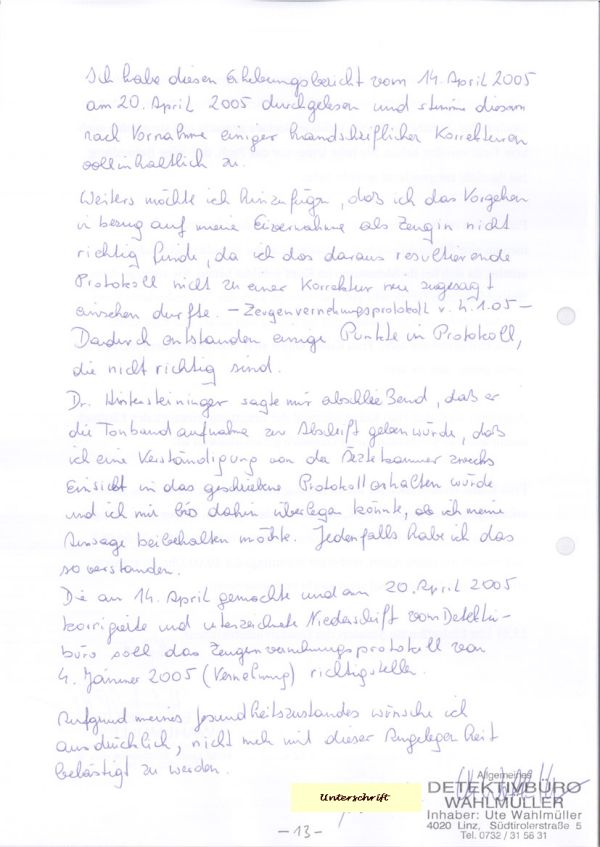 Ich habe diesen Erhebungsbericht vom 14. April 2005
am 20. April 2005 durchgelesen und stimme diesem
nach Vornahme einiger handschriftlicher Korrekturen
vollinhaltlich zu.
Weiters möchte ich hinzufügen, daß ich das Vorgehen
in bezug auf meine Einvernahme als Zeugin nicht
richtig finde, da ich das daraus resultierende
Protokoll nicht zu einer Korrektur wie zugesagt
einsehen durfte. – Zeugenvernehmungsprotokoll v. 4.1.05 –
Dadurch entstanden einige Punkte in Protokoll,
die nicht richtig sind.
Dr. Hintersteininger sagte mir abschließend, daß er
die Tonbandaufnahme zur Abschrift geben würde, daß
ich eine Verständigung von der Ärztekammer zwecks
Einsicht in das geschriebene Protokoll erhalten würde
und ich mir bis dahin überlegen könnte, ob ich meine
Aussage beibehalten möchte. Jedenfalls habe ich das
so verstanden.
Die am 14. April gemachte und am 20. April 2005
korrigierte und unterzeichnete Niederschrift vom Detektiv-
büro soll das Zeugenvernehmungsprotokoll von
4. Jänner 2005 (Vernehmung) richtigstellen.
Aufgrund meines Gesundheitszustandes wünsche ich
ausdrücklich, nicht mehr mit dieser Angelegenheit
belästigt zu werden.
Unterschrift
Allgemeines
DETEKTIVBÜRO
WAHLMÜLLER
Inhaber: Ute Wahlmüller
4020 Linz, Südtirolerstraße 5
Tel. 0732 / 31 56 31
– 13 –